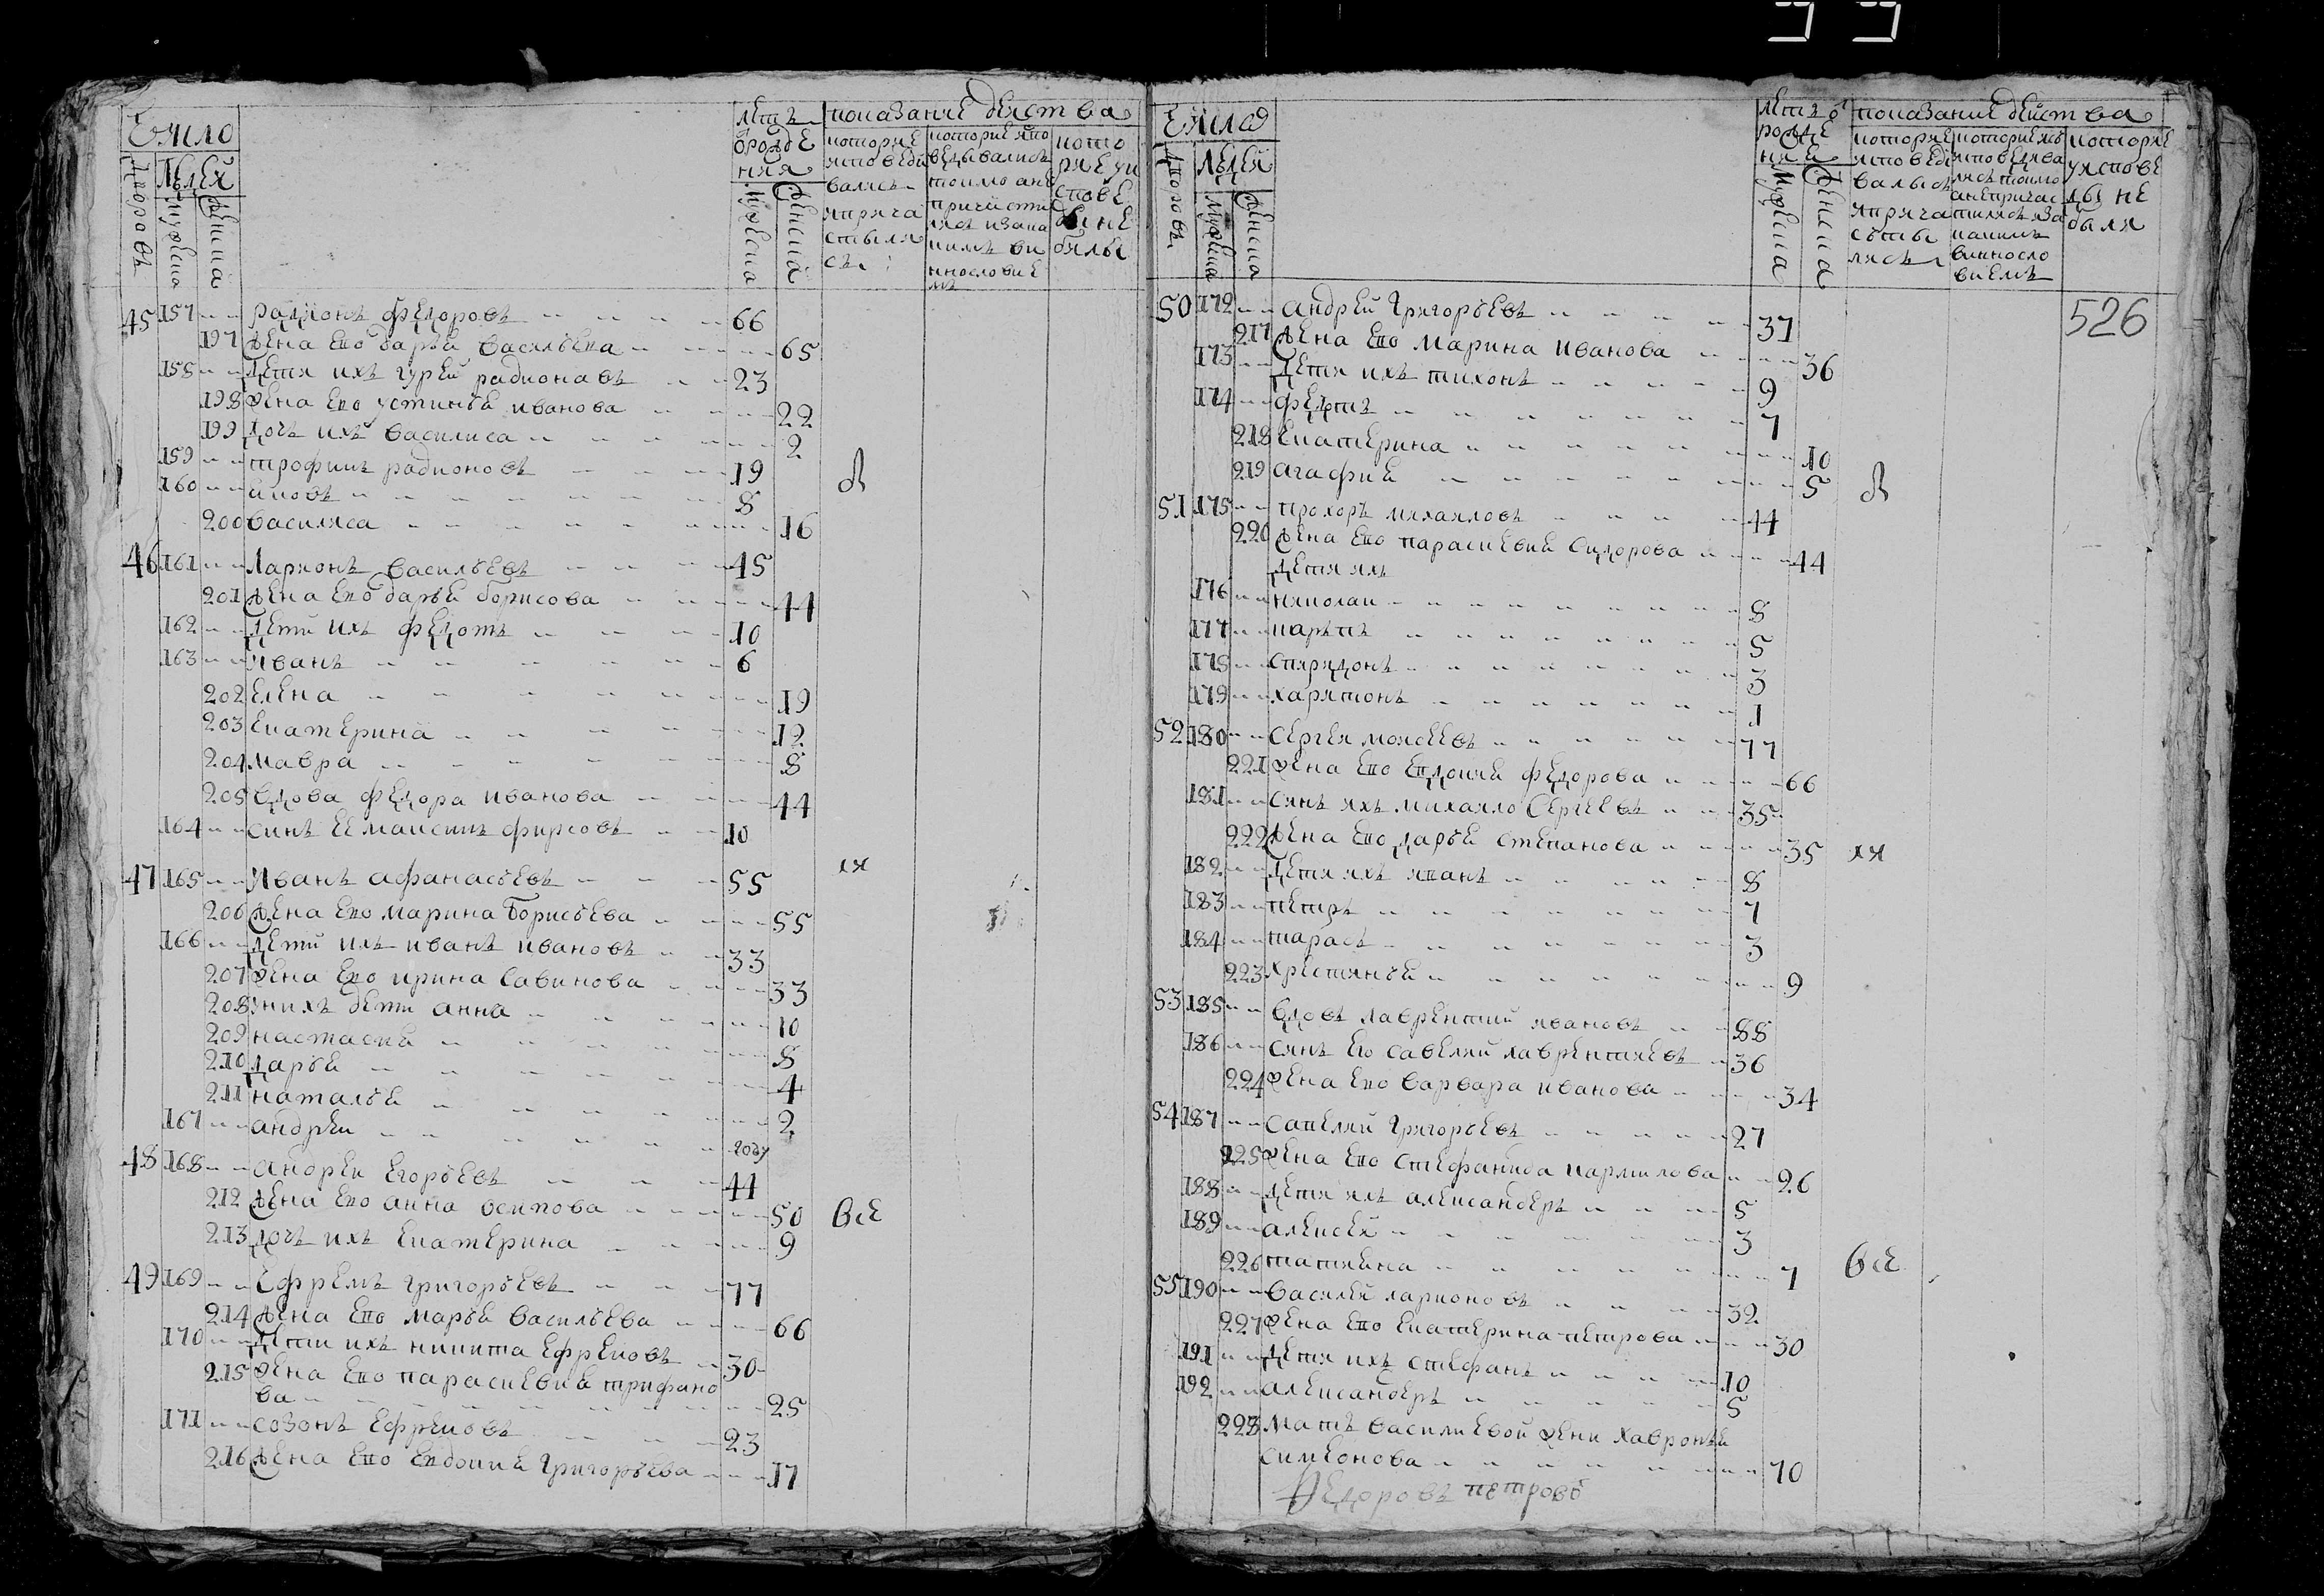 Число
Людей
Дворовъ
Мужеска
Женска
Летъ
от рожде
ния
Мужеска
Женска
показание действа
которые
исповеди
вались
и прича
стилис
съ
которые испо
ведывались
токмо а не
причасти
лись и за ка
кимъ ви
нословие
мъ
кото
рые у и
спове
ди не
были
45 157 Радионъ Федоровъ 66
197 жена ево дарья василъева 65
158 дети ихъ гурей радионавъ 23
198 жена ево устинья иванова 22
199 дочь ихъ василиса 2
159 трофимъ радионовъ 19
160 яковъ 8
200 василиса 16
46 161 Ларионъ василъевъ 45
201 жена ево дарья борисова 44
162 дети ихъ федотъ 10
163 иванъ 6
202 елена 19
203 екатерина 12
204 мавра 8
205 вдова федора иванова 44
164 синъ ее максимъ фирсовъ 10
47 165 Иванъ афанасъевъ 55
их
206 жена ево марина борисъева 55
166 дети ихъ иванъ ивановъ 33
207 жена ево ирина савинова 33
208 у нихъ дети анна 10
209 настасия 8
210 дарья 4
211 наталъя 2
167 андреи году
48 168 андреи егоръевъ 44
212 жена ево анна осипова 50 все
213 дочь ихъ екатерина 9
49 169 ефремъ григоръевъ 77
214 жена ево марья василъева 66
170 дети ихъ никита ефремовъ 30
215 жена ево парасковия трифано
ва 25
171 созонъ ефремовъ 23
216 жена ево евдокия григоръева 17
Числа
Людей
Дворовъ
Мужеска
Женска
Летъ от
рожде
ния
Мужеска
Женска
показание действа
которые
исповеди
вались
и прича
сти
лись
которые
исповедыва
лись токмо
а не причас
тились и за
какимъ
винносло
виемъ
которые
у испове
ди не
были
526
50 172 андрей григоръевъ 37
217 жена ево марина иванова 36
173 дети ихъ тихонъ 9
174 федотъ 7
218 екатерина 10
219 агафия 5
51 175 прохоръ михаиловъ 44
220 жена ево парасковия сидорова 44
дети ихъ
176 николаи 8
177 карпъ 5
178 спиридонъ 3
179 харитонъ 1
52 180 сергеи моисеевъ 77
221 жена ево евдокия федорова 66
181 синъ ихъ михаило сергеевъ 35
222 жена ево дарья степанова 35 их
182 дети ихъ иванъ 8
183 петръ 7
184 тарасъ 3
223 христинъя 9
53 185 вдовъ лаврентий ивановъ 88
186 синъ его савелий лаврентиевъ 36
224 жена ево варвара иванова 34
54 187 савелий григоръевъ 27
225 жена ево стефанида кармилова 26
188 дети ихъ александеръ 5
189 алексей 3
226 татияна 7 все
55 190 василей ларионовъ 32
227 жена ево екатерина петрова 30
191 дети ихъ стефанъ 10
192 александеръ 5
228 мать василиевой жени хавронъя
симеонова 70
Федоровъ петровъ